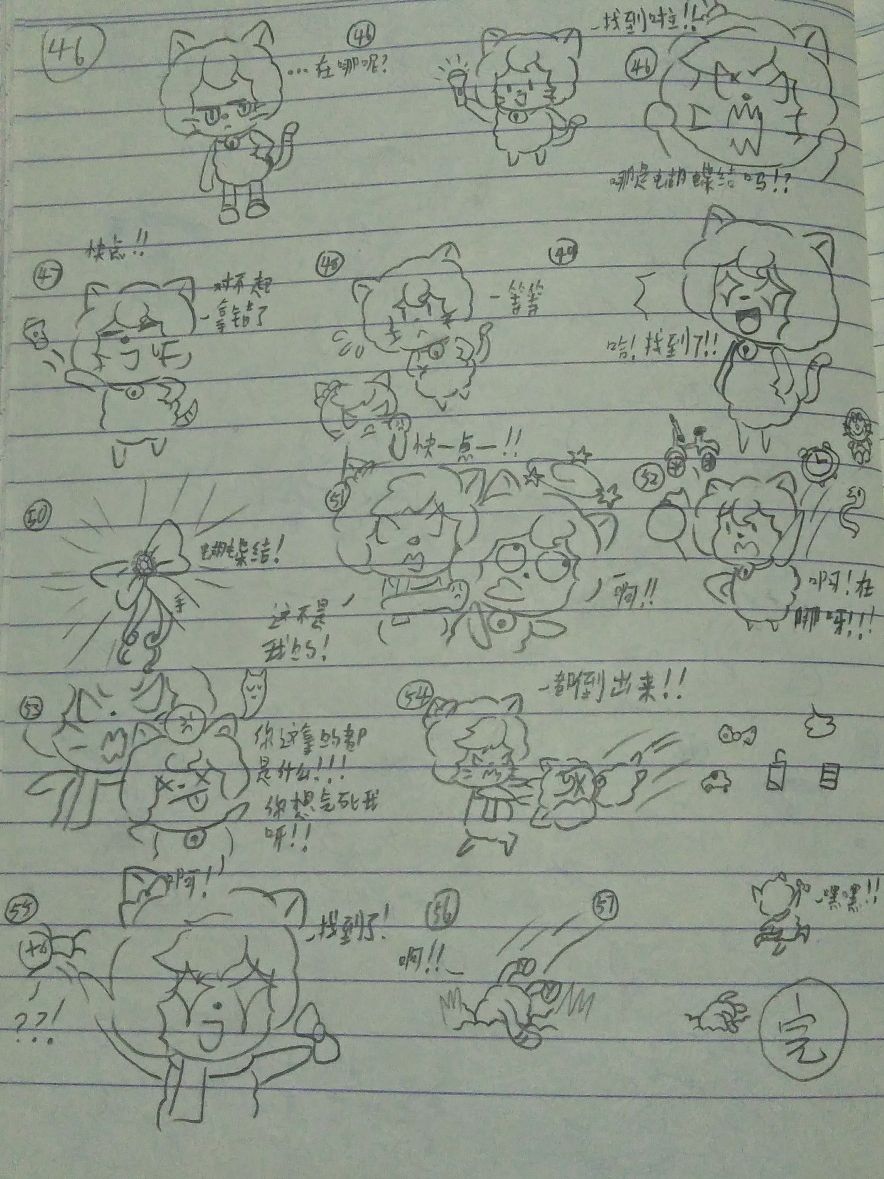 46
46
…在哪呢?
找到啦!!
46
哪是蝴蝶结吗!?
快点!!
47
对不起
拿错了
48
等等
49
哈!找到了!!
快一点!!
50
蝴蝶结!
手
这不是
我的!
51
啊!!
52
啊!在
哪呀!!!
53
你这拿的都
是什么!!!
你想气死我
呀!!
54
都倒出来!!
啊!
55
找到了!
??!
56
啊!!
57
嘿嘿!!
完